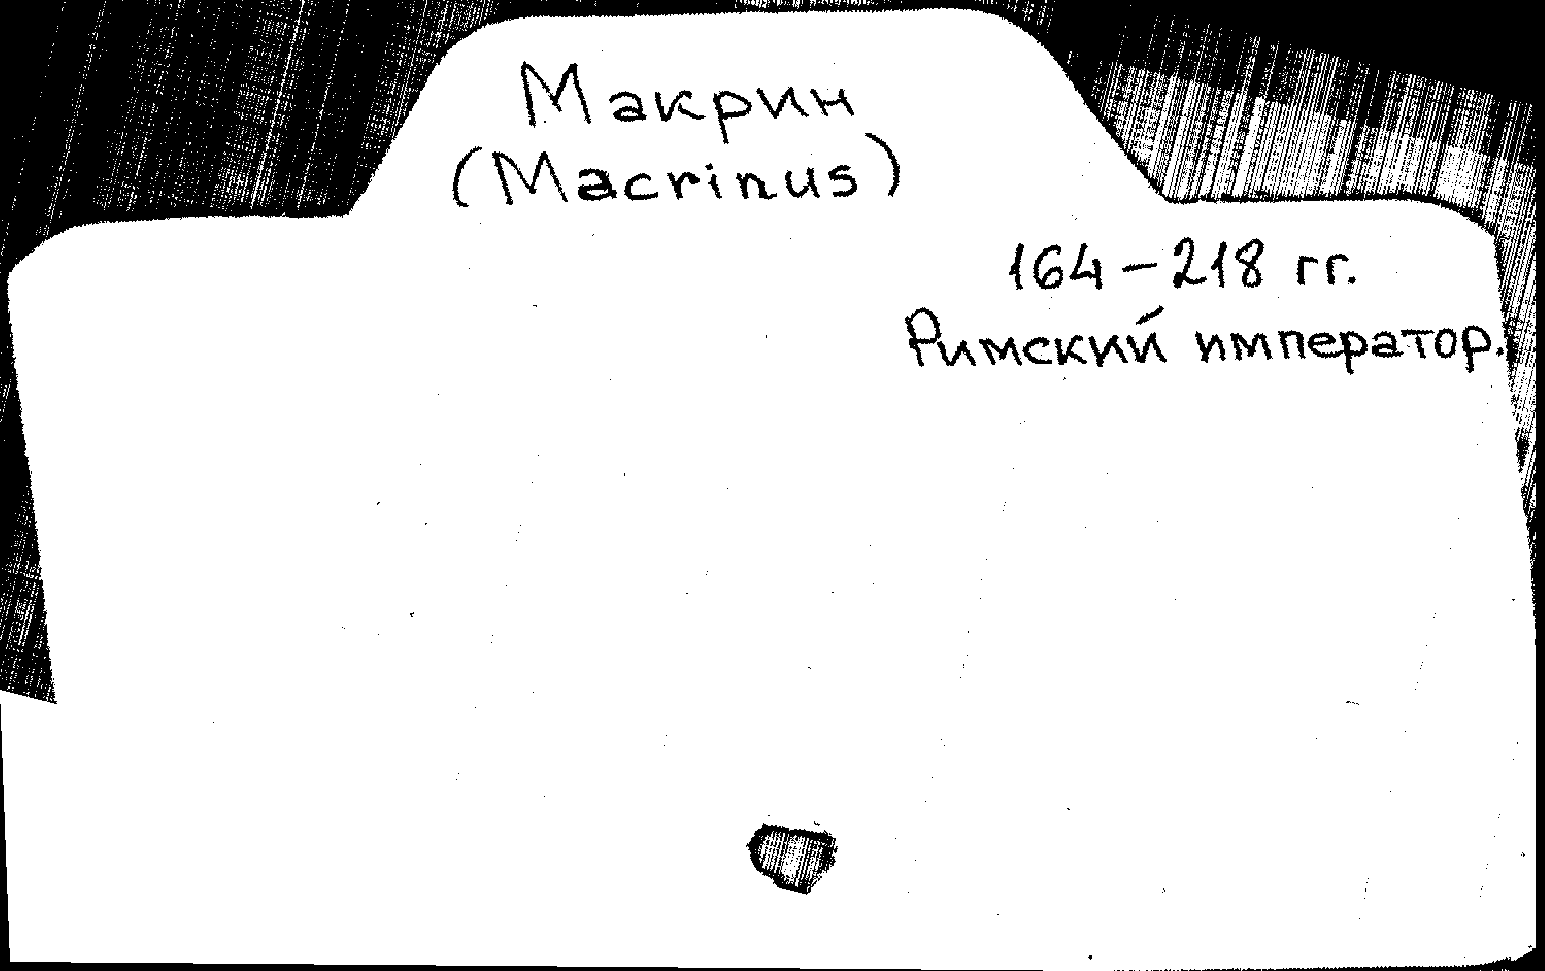 Макрин
(Macrinus)
164–218 гг.
Римский император.